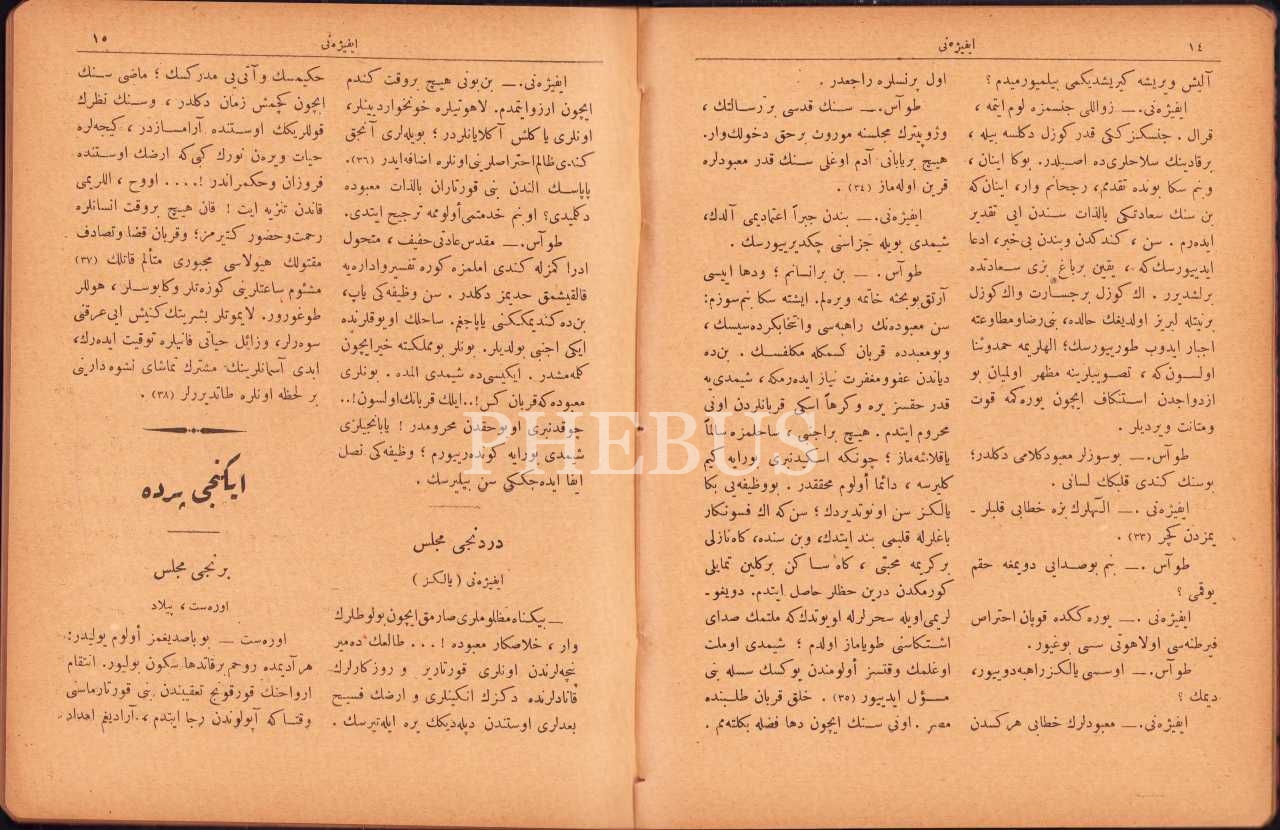 ١٤
ايفيژه‌نى
آليش ويريشه كيريشديكمى بيلميورميدم ؟
ايفيژه‌نى .— زواللى جنسمزه لوم ايتمه ،
قرال . جنسكز كبى قدر كوزل دكلسه بيله ،
برقادينك سلاحلرى ده اصيلدر . بوكا اينان ،
وبنم سكا بونده تقدمم ، رجحانم وار، اينان كه
بن سنك سعادتكى بالذات سندن ايى تقدير
ايده‌رم . سن ، كندكدن وبندن بى خبر، ادعا
ايديبورسك كه ، يقين برباغ بزى سعادتده
برلشديرر . اك كوزل برجسارت واك كوزل
برنيتله لبريز اولديغك حالده، بنى رضا ومطاوعته
اجبار ايدوب طوريبورسك؛ الهلريمه حمدوثنا
اولسون كه ، تصويبلرينه مظهر اولميان بو
ازدواجدن استنكاف ايچون يوره‌كمه قوت
ومتانت ويرديلر .
طوآس .— بوسوزلر معبود كلامى دكلدر؛
بوسنك كندى قلبكك لسانى .
ايفيژه‌نى .— آلهلرك بزه خطابى قلبلر -
يمزدن كچر (٣٣) .
طوآس .— بنم بوصدايى دويمغه حقم
يوقمى ؟
ايفيژه‌نى .— يوره‌ككده قوپان احتراس
فيرطنه‌سى اولاهوتى سسى بوغيور .
طوآس .— اوسسى يالكز راهبه دوييور،
ديمك ؟
ايفيژه‌نى .— معبودلرك خطابى هركسدن
اول پرنسلره راجعدر .
طوآس .— سنك قدسى بررسالتك ،
وژوپيترك مجلسنه موروث برحق دخولك وار.
هيچ بريابانى آدم اوغلى سنك قدر معبودلره
قرين اوله‌ماز (٣٤) .
ايفيژه‌نى .— بندن جبراً اعتماديمى آلدك،
شيمدى بويله جزاسنى چكديريبورسك .
طوآس .— بن برانسانم ؛ ودها اييسى
آرتق بوبحثه خاتمه ويره‌لم. ايشته سكا بنم سوزم:
سن معبوده‌نك راهبه‌سى وانتخابكرده‌سيسك ،
وبومعبدده قربان كسمكله مكلفسك . بن ده
دياندن عفوومغفرت نياز ايده‌رم كه ، شيمدى‌يه
قدر حقسز يره وكرهاً اسكى قربانلردن اونى
محروم ايتدم . هيچ براجنبى ، ساحلمزه سالماً
ياقلاشه‌ماز ؛ چونكه اسكيدنبرى بورايه كيم
كليرسه ، دائما اولوم محققدر . بووظيفه‌يى بكا
يالكز سن اونوتديردك ؛ سن كه اك فسونكار
باغلرله قلبمى بند ايتدك، وبن سنده، كاه نازلى
بركريمه محبتى ، كاه ساكن بركلين تمايلى
كورمكدن درين حظلر حاصل ايتدم . دويغو-
لريمى اويله سحرلرله اويوتدك كه ملتمك صداى
اشتكاسنى طويامازاولدم ؛ شيمدى اوملت
اوغلمك وقتسز أولومندن يوكسك سسله بنى
مسؤل ايدييور (٣٥) . خلق قربان طلبنده
مصر . اونى سنك ايچون دها فضله بكلته‌مم .
ايفيژه‌نى
١٥
ايفيژه‌نى .— بن بونى هيچ بروقت كندم
ايچون آرزوايتمدم. لاهوتيلره خونخوارديينلر،
اونلرى ياكلش آكلايانلردر؛ بويله‌لرى آنجق
كندى ظالم احتراصلرينى اونلره اضافه ايدر (٣٦).
پاپاسك الندن بنى قورتاران بالذات معبوده
دكلميدى؟ اوبنم خدمتمى أولوممه ترجيح ايتدى.
طوآس .— مقدس عادتى خفيف ، متحول
ادراكمزله كندى املمزه كوره تفسيرواداره‌يه
قالقيشمق حديمز دكلدر . سن وظيفه‌كى ياپ،
بن ده كنديمككنى ياپاجغم. ساحلك اوبوقلرنده
ايكى اجنبى بولديلر. بونلر بومملكته خيرايچون
كلمه‌مشدر . ايكيسى ده شيمدى المده . بونلرى
معبوده‌كه قربان كس !.. ايلك قربانك اولسون !..
چوقدنبرى اوبوحقدن محرومدر ! يابانجيلرى
شيمدى بورايه كونده‌رييورم ؛ وظيفه‌كى نصل
ايفا ايده‌جككى سن بيليرسك .
دردنجى مجلس
ايفيژه‌نى ( يالكز )
— بيكناه مظلوملرى صارمق ايچون بولوطلرك
وار ، خلاصكار معبوده !... طالعك ده‌مير
پنچه‌لرندن اونلرى قورتارير و روزكارلرك
قانادلرنده دكزك انكينلرى و ارضك فسيح
بعدلرى اوستندن ديله‌ديكك يره ايله‌تيرسك .
حكيمسك و آتى‌يى مدركسك ؛ ماضى سنك
ايچون كچمش زمان دكلدر ، وسنك نظرك
قوللريكك اوستنده آرامسازدر ، كيجه‌لره
حيات ويره‌ن نورك كبى كه ارضك اوستنده
فروزان وحكمراندر !... اووح ، اللريمى
قاندن تنزيه ايت ! قان هيچ بروقت انسانلره
رحمت وحضور كتيرمز؛ وقربان قضا وتصادف
مقتولك هيولاسى مجبورى متألم قاتلك (٣٧)
مشئوم ساعتلرينى كوزه‌تلر وكابوسلر ، هوللر
طوغورور. لايموتلر بشريتك كنيش ايى عرقنى
سوه‌رلر، وزائل حياتى فانيلره توقيت ايده‌رك،
ابدى آسمانلرينك مشترك تماشاى نشوه‌دارينى
بر لحظه اونلره طاتديررلر (٣٨) .
ايكنجى پرده
برنجى مجلس
اوره‌ست ، پيلاد
اوره‌ست — بو باصديغمز أولوم يوليدر:
هرآديمده روحم برقاتدها سكون بوليور. انتقام
ارواحنك قورقونج تعقيبندن بنى قورتارماسنى
وقتا كه آپولوندن رجا ايتدم ، آراديغم امداد
PHEBUS